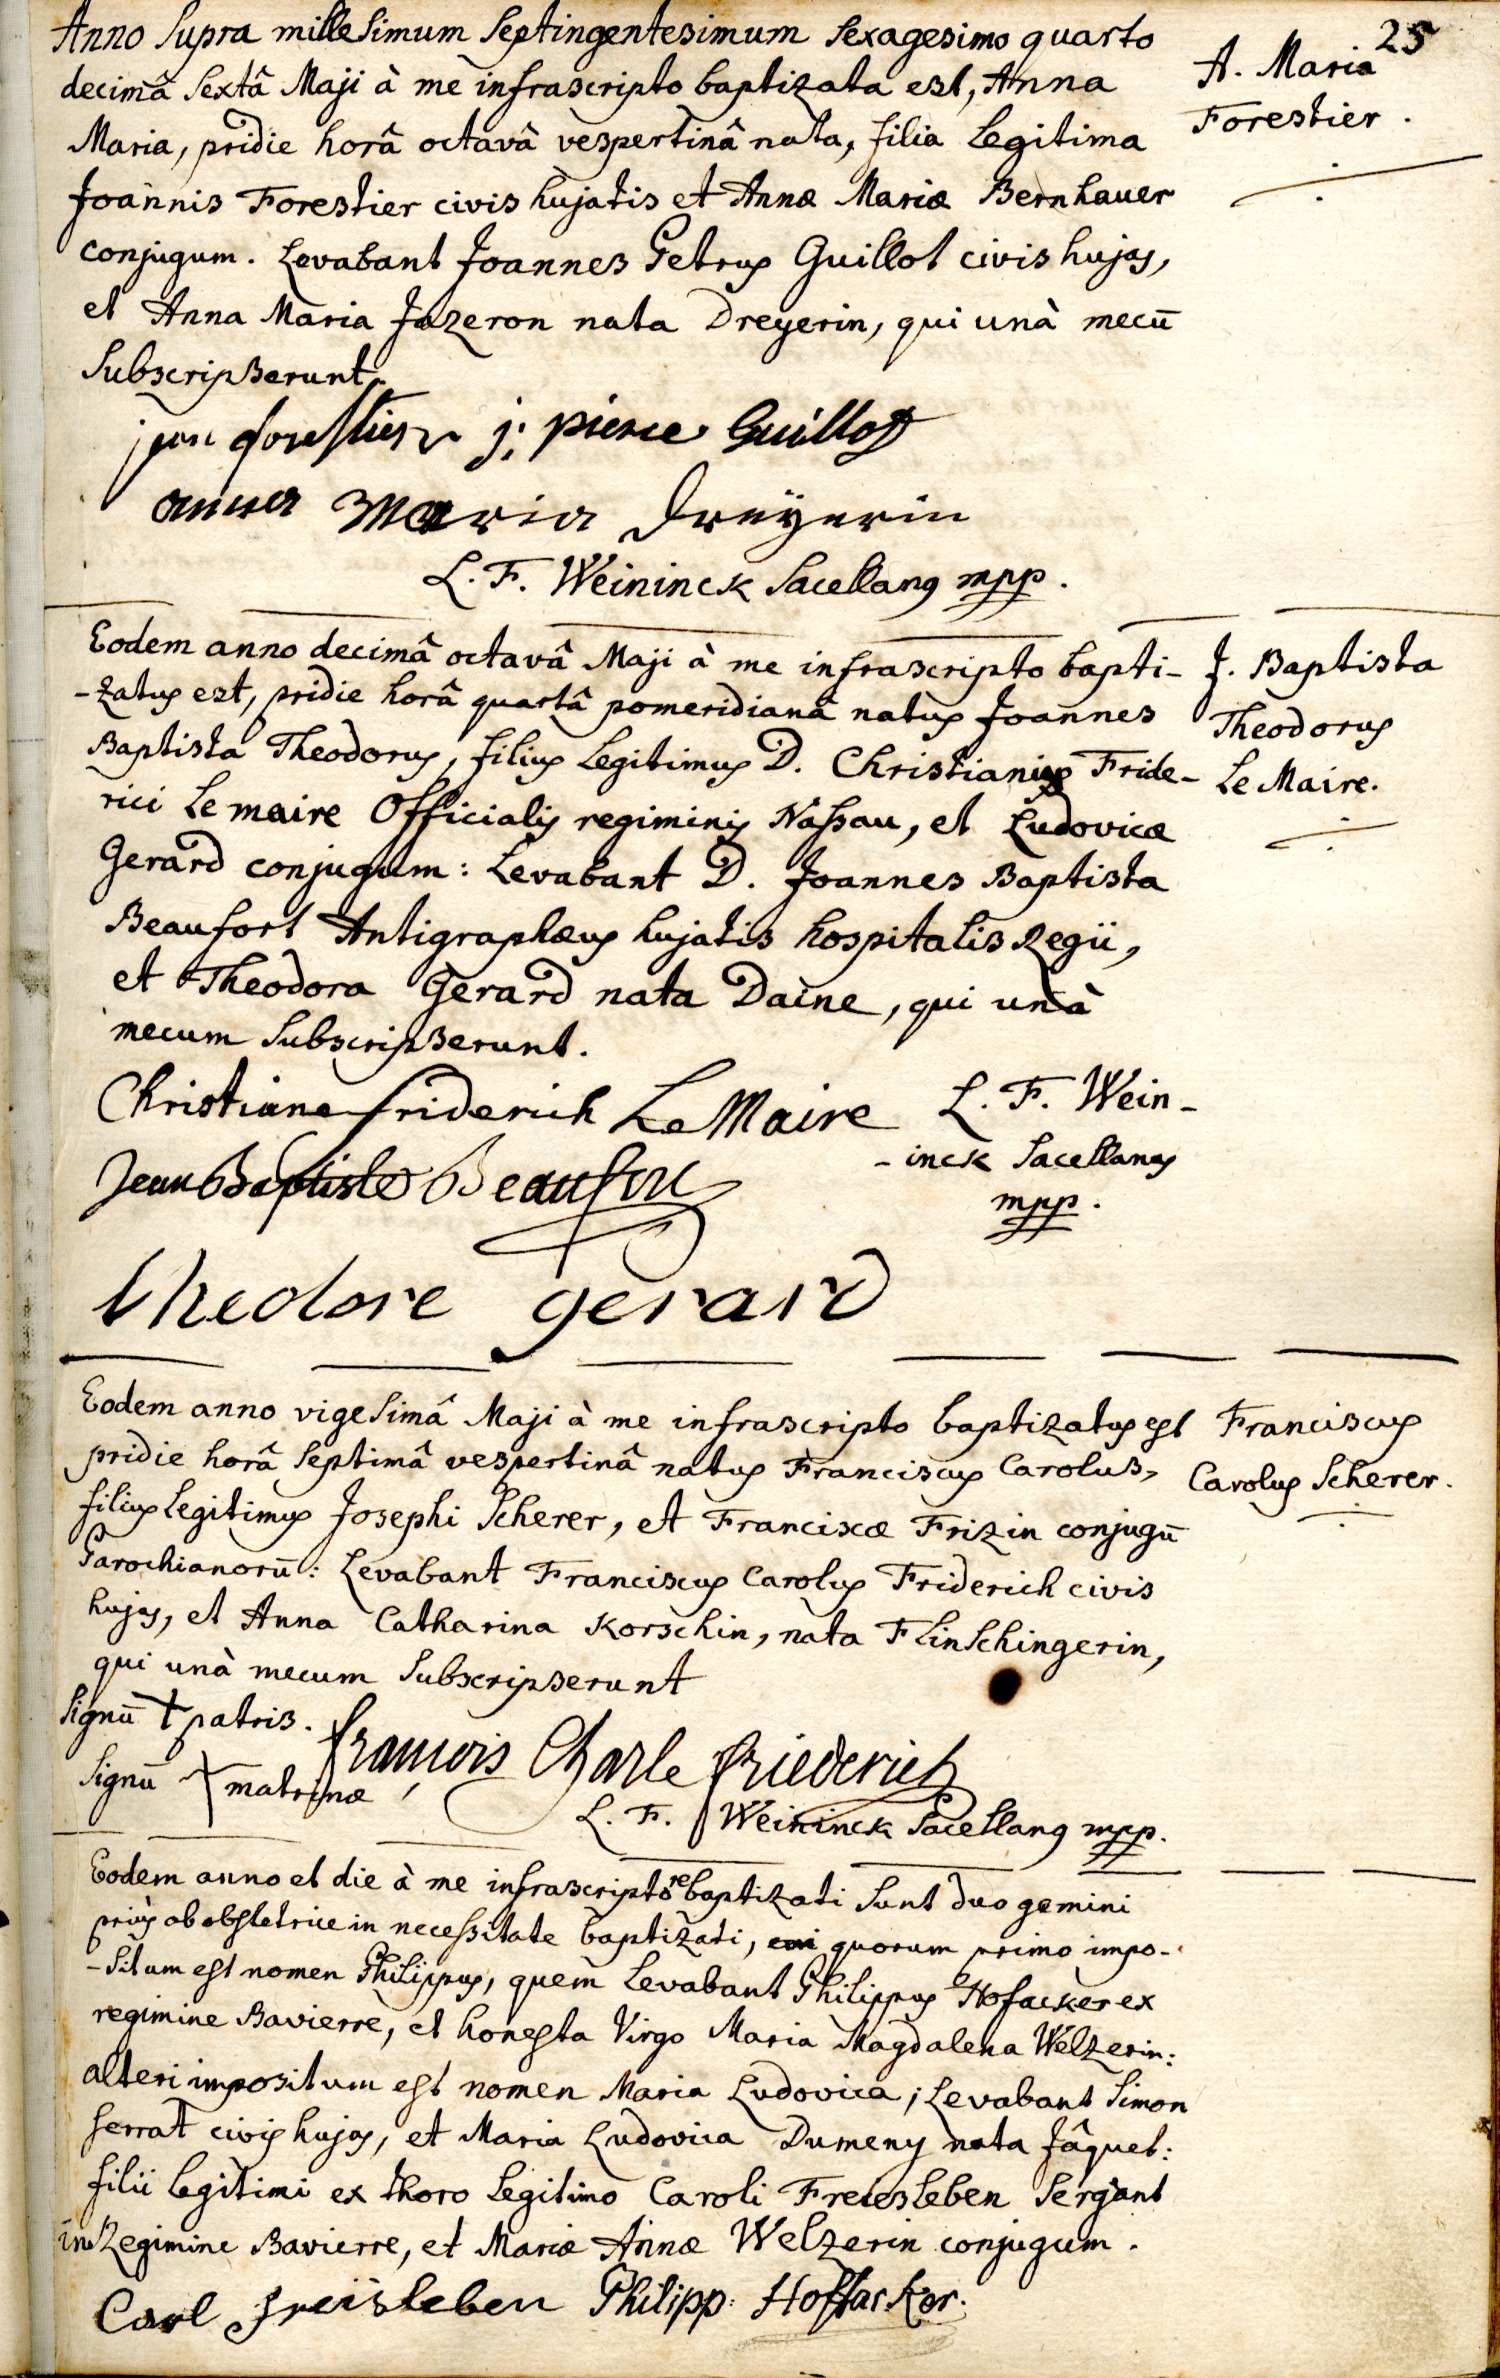 25
Anno supra millesimum septingentesimum sexagesimo quarto
decimâ sextâ Maji à me infrascripto baptizata est, Anna
Maria, pridie horâ octavâ vespertinâ nata, filia legitima
Joannis Forestier civis hujatis et Annæ Mariæ Bernhauer
conjugum. Levabant Joannes Petrus Guillot civis hujas,
et Anna Maria Jazeron nata Dreyerin, qui unà mecū
subscripserunt.
A. Maria
Forestier.
jean forestier j: pierre Guillot
anna Maria Dreÿerin
L. F. Weininck Sacellanus mpp.
Eodem anno decimâ octavâ Maji à me infrascripto bapti-
-zatus est, pridie horâ quartâ pomeridianâ natus Joannes
Baptista Theodorus, filius legitimus D. Christiani Fride-
rici Le maire Officialis regiminis Nassau, et Ludovicæ
Gerard conjugum: Levabant D. Joannes Baptista
Beaufort Antigraphæus hujatis hospitalis Regii,
et Theodora Gerard nata Daine, qui unà
mecum subscripserunt.
J. Baptista
Theodorus
Le Maire.
Christiane friderich Le Maire L. F. Wein-
-inck Sacellanus
Jean Baptiste Beaufort
mpp.
theodore gerard
Eodem anno vigesimâ Maji à me infrascripto baptizatus est
pridie horâ septimâ vespertinâ natus Franciscus Carolus,
filius legitimus Josephi Scherer, et Franciscæ Frizin conjugū
Parochianorū: Levabant Franciscus Carolus Friderich civis
hujas, et Anna Catharina Korschin, nata Flinschingerin,
qui unà mecum subscripserunt
Franciscus
Carolus Scherer.
Signū + patris. françois Charle friederich
Signū + matrinæ
L. F. Weininck Sacellanus mpp.
Eodem anno et die à me infrascripto rebaptizati sunt duo gemini
priùs ab obstetrice in necessitate baptizati, quorum primo impo-
-situm est nomen Philippus, quem levabant Philippus Hofacker ex
regimine Bavierre, et honesta Virgo Maria Magdalena Welzerin:
alteri impositum est nomen Maria Ludovica; Levabant Simon
serrat civis hujas, et Maria Ludovica Dumeny nata Jâquet:
filii legitimi ex thoro legitimo Caroli Freiesleben Sergant
in Regimine Bavierre, et Mariæ Annæ Welzerin conjugum.
Carl Freisleben Philipp: Hoffacker.